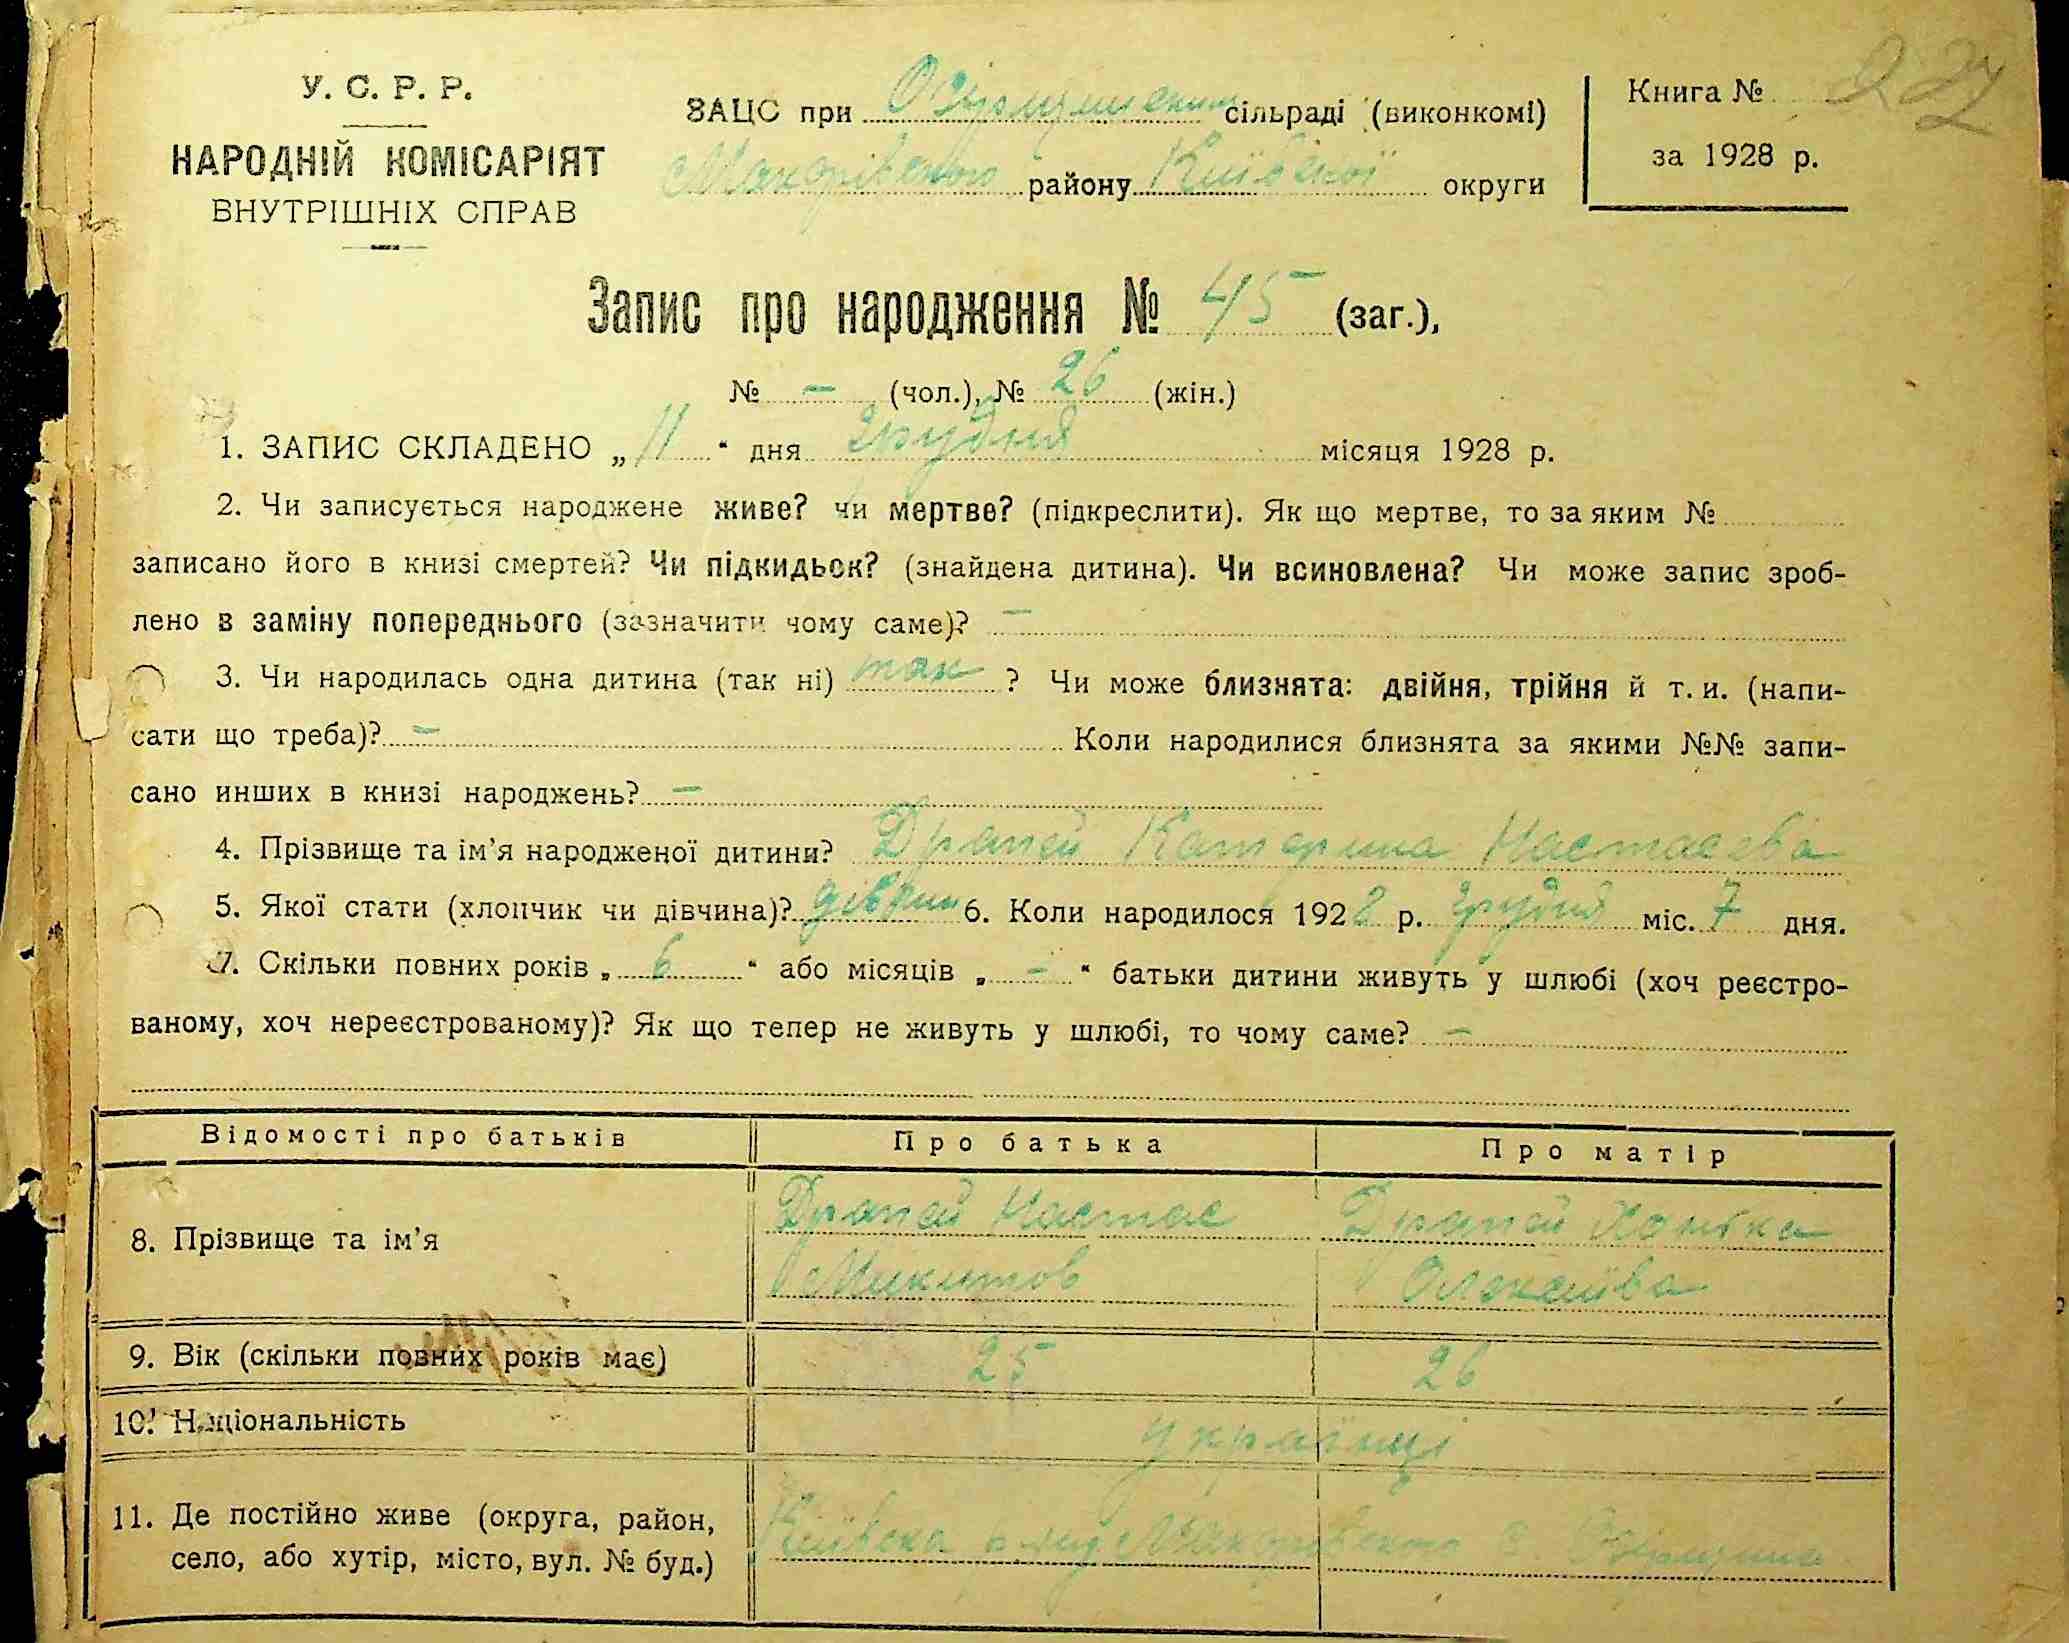 У. С. Р. Р.
НАРОДНІЙ КОМІСАРІЯТ
ВНУТРІШНІХ СПРАВ
ЗАЦС при сільраді (виконкомі)
Макарівського району Київської округи
Книга №
за 1928 р.
Запис про народження № 45 (заг.),
№ – (чол.), № 26 (жін.)
1. ЗАПИС СКЛАДЕНО „ 11 “ дня грудня місяця 1928 р.
2. Чи записується народжене живе? чи мертве? (підкреслити). Як що мертве, то за яким №
записано його в книзі смертей? Чи підкидьок? (знайдена дитина). Чи всиновлена? Чи може запис зроб-
лено в заміну попереднього (зазначити чому саме)? –
3. Чи народилась одна дитина (так ні) так ? Чи може близнята: двійня, трійня й т. и. (напи-
сати що треба)? – Коли народилися близнята за якими №№ запи-
сано инших в книзі народжень? –
4. Прізвище та ім’я народженої дитини? Драпей Катерина Настасєва
5. Якої стати (хлопчик чи дівчина)? дівчин 6. Коли народилося 1928 р. грудня міс. 7 дня.
7. Скільки повних років „ 6 “ або місяців „ – “ батьки дитини живуть у шлюбі (хоч реєстро-
ваному, хоч нереєстрованому)? Як що тепер не живуть у шлюбі, то чому саме? –
Відомості про батьків Про батька Про матір
8. Прізвище та ім’я Драпей Настас Драпей Хонька
Микитов Олексіїва
9. Вік (скільки повних років має) 25 26
10. Національність українці
11. Де постійно живе (округа, район,
село, або хутір, місто, вул. № буд.) Київска Макарівського с.